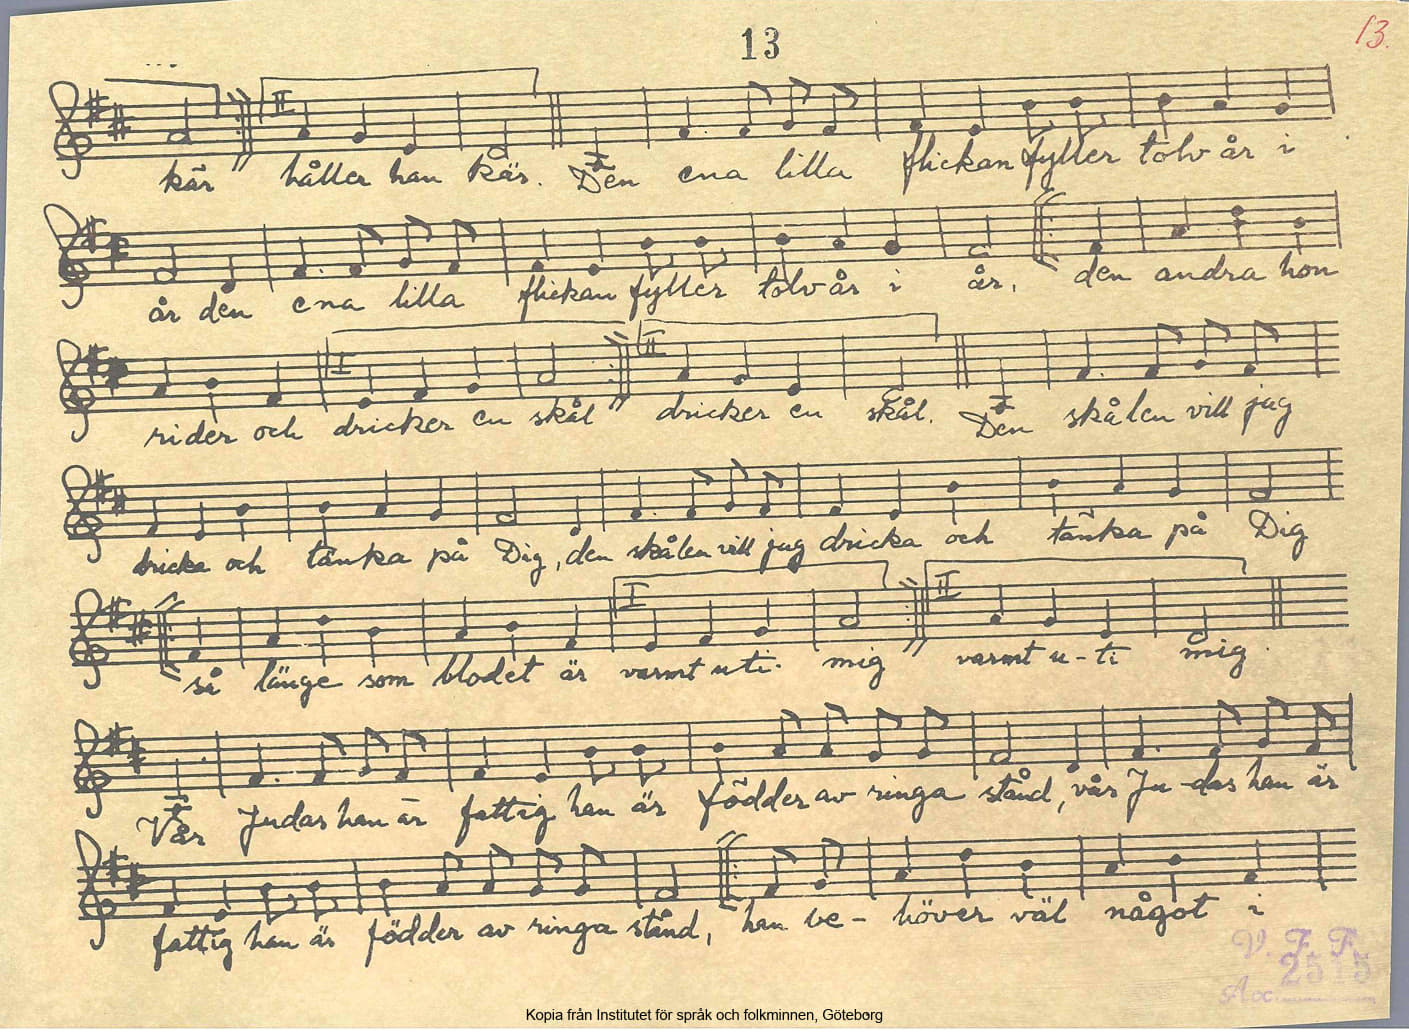 13
13.
II
kär håller han kär. Den ena lilla flickan fyller tolv år i
år den ena lilla flickan fyller tolv år i år, den andra hon
I II
rider och dricker en skål dricker en skål. Den skålen vill jag
dricka och tänka på Dig, den skålen vill jag dricka och tänka på Dig
I II
så länge som blodet är varmt uti mig varmt u-ti mig.
Vår Judas han är fattig han är födder av ringa stånd, vår Ju-das han är
fattig han är födder av ringa stånd, han be- höver väl något i
V. F. F.
2515
Acc.
Kopia från Institutet för språk och folkminnen, Göteborg